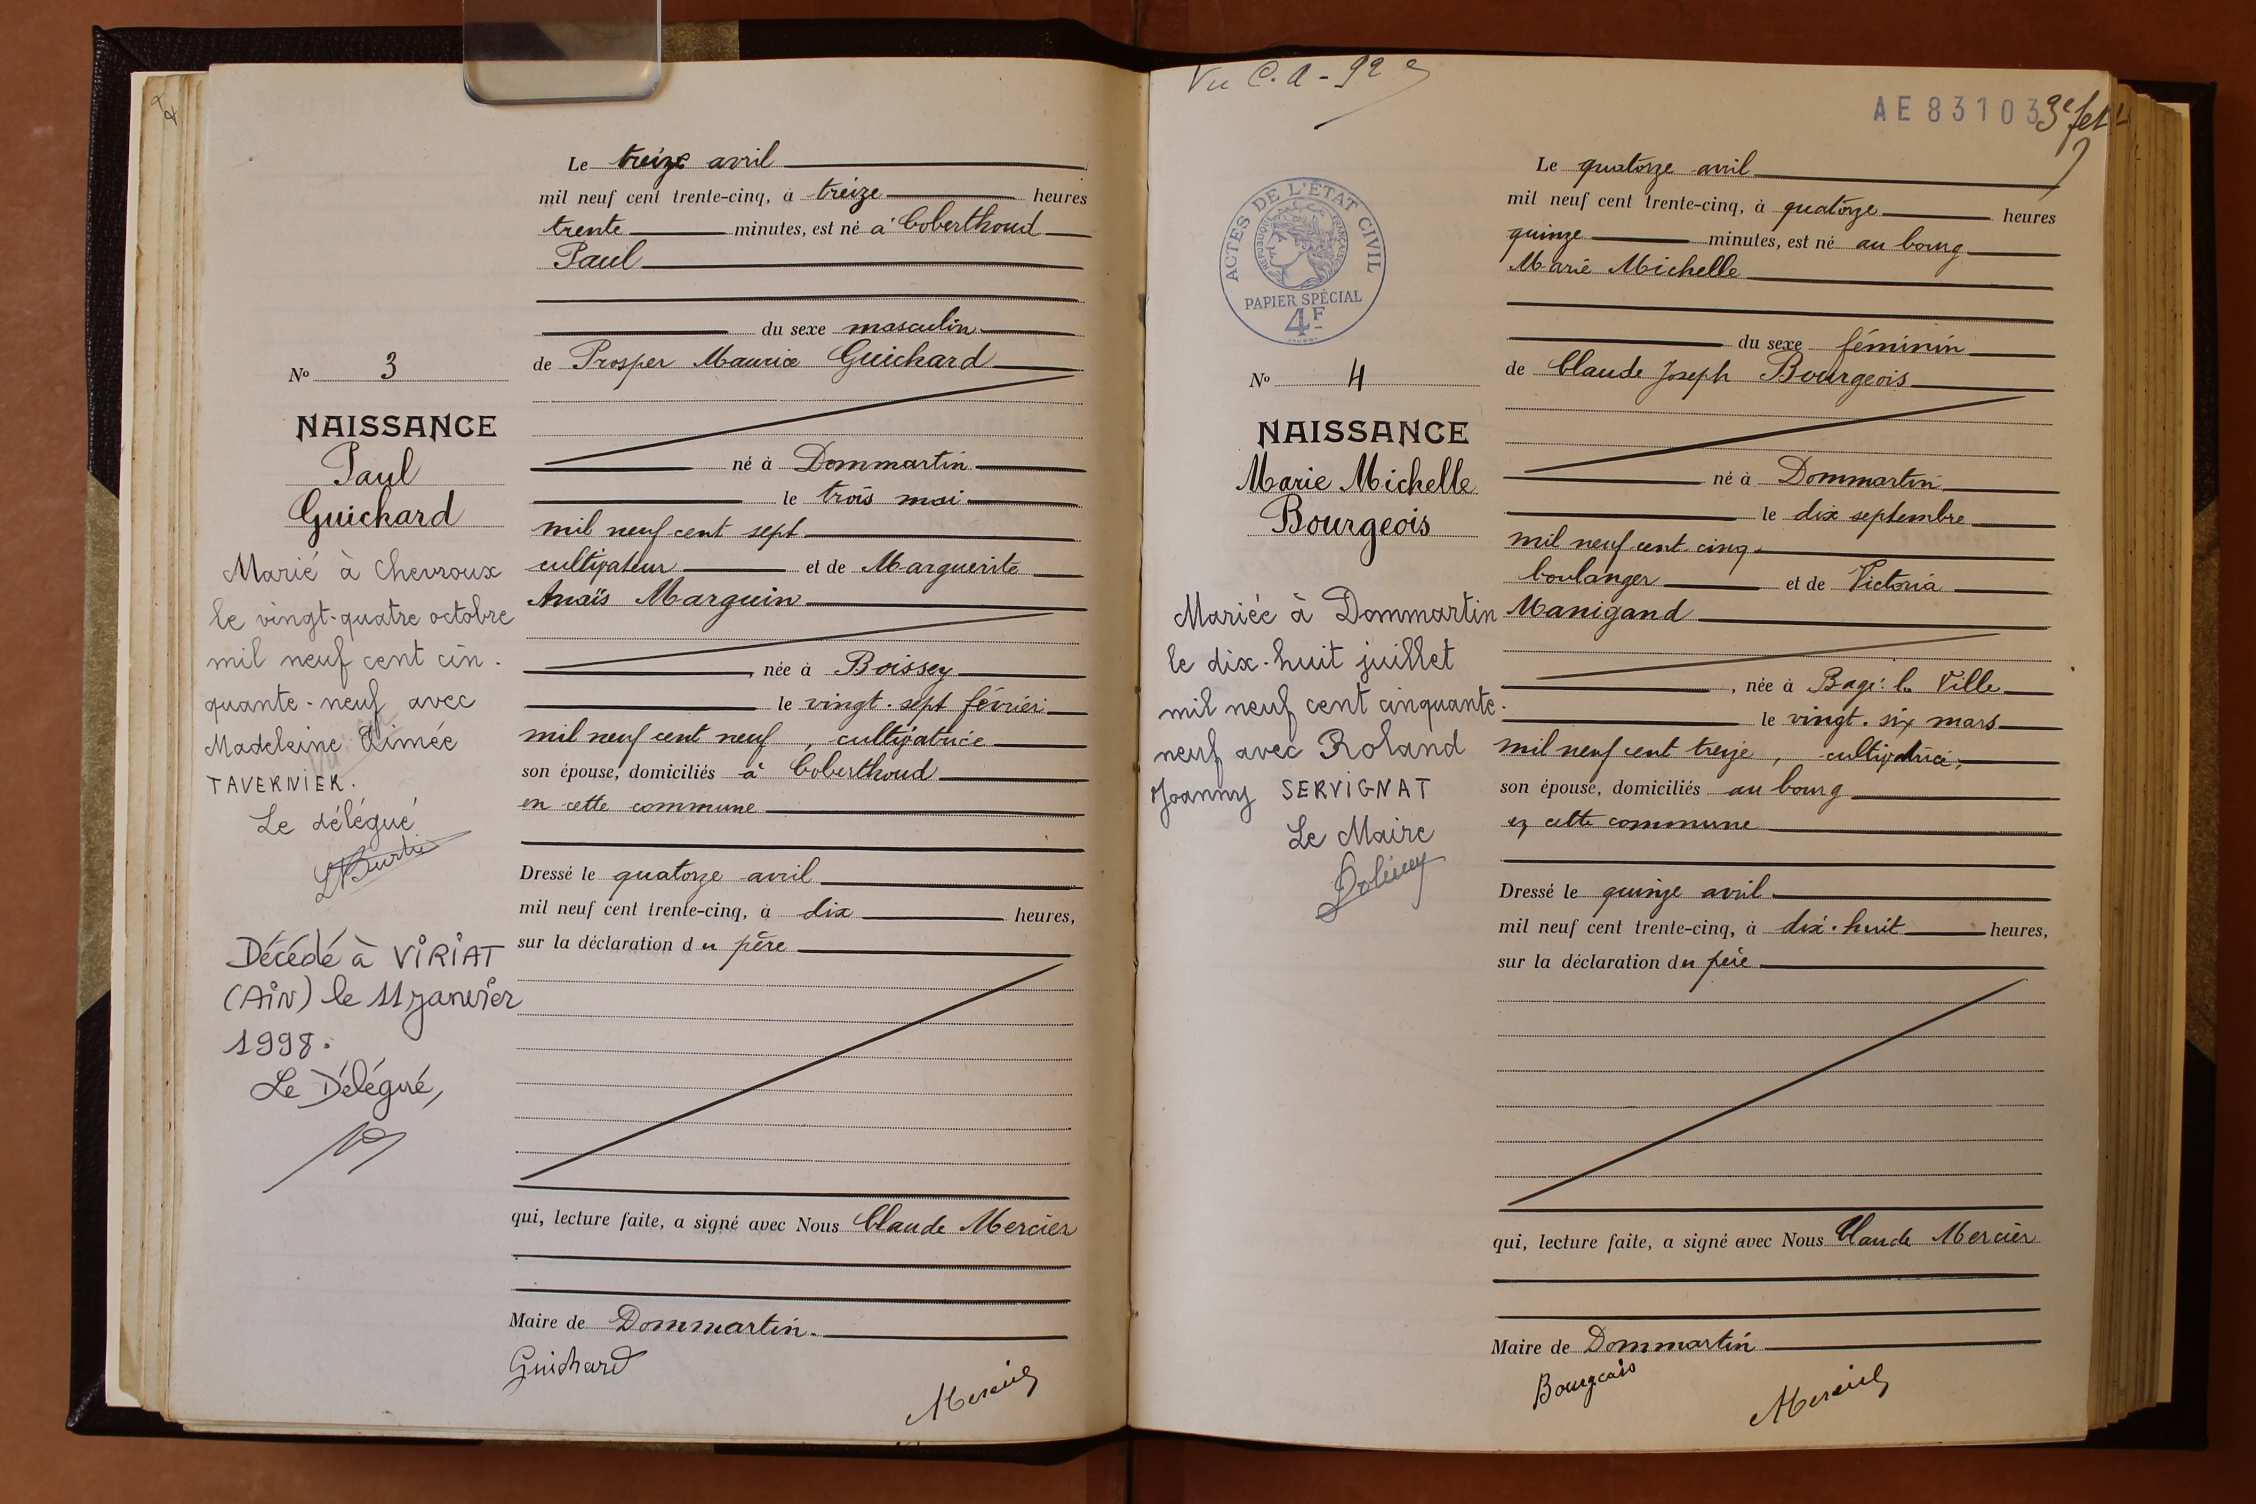 Le treize avril
mil neuf cent trente-cinq, à treize heures
trente minutes, est né à Coberthoud
Paul
du sexe masculin
de Prosper Maurice Guichard
né à Dommartin
le trois mai
mil neuf cent sept
cultivateur et de Marguerite
Anaïs Marguin
née à Boissey
le vingt-sept février
mil neuf cent neuf, cultivatrice
son épouse, domiciliés à Coberthoud
en cette commune
Dressé le quatorze avril
mil neuf cent trente-cinq, à dix heures,
sur la déclaration du père
qui, lecture faite, a signé avec Nous Claude Mercier
Maire de Dommartin.
Guichard
Mercier
No 3
NAISSANCE
Paul
Guichard
Marié à Chevroux
le vingt-quatre octobre
mil neuf cent cin-
quante-neuf avec
Madeleine Aimée
TAVERNIER.
Le délégué
Décédé à VIRIAT
(AIN) le 11 janvier
1998.
Le Délégué,
Vu C.A-92
AE83103
3e fet
ACTES DE L'ÉTAT CIVIL
RÉPUBLIQUE FRANÇAISE
PAPIER SPÉCIAL
4F
Le quatorze avril
mil neuf cent trente-cinq, à quatorze heures
quinze minutes, est né au bourg
Marie Michelle
du sexe féminin
de Claude Joseph Bourgeois
né à Dommartin
le dix septembre
mil neuf cent cinq
boulanger et de Victoria
Manigand
, née à Bagé-la Ville
le vingt-six mars
mil neuf cent treize, cultivatrice,
son épouse, domiciliés au bourg
en cette commune
Dressé le quinze avril
mil neuf cent trente-cinq, à dix-huit heures,
sur la déclaration du père
qui, lecture faite, a signé avec Nous Claude Mercier
Maire de Dommartin
Bourgeois
Mercier
No 4
NAISSANCE
Marie Michelle
Bourgeois
Mariée à Dommartin
le dix-huit juillet
mil neuf cent cinquante-
neuf avec Roland
Joanny SERVIGNAT
Le Maire